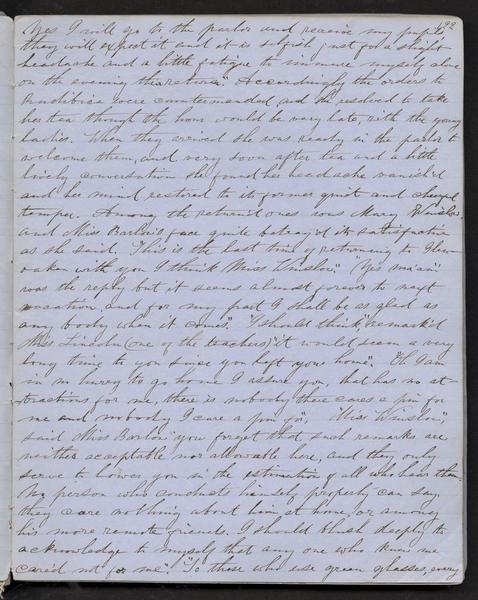 192
Yes I will go to the parlor and receive my pupils
they will expect it and it is selfish just for a slight
headache and a little fatigue to immure myself alone
on the evening their return." Accordingly the orders to
were countermanded, and she resolved to take
her tea though the hour would be very late, with the young
ladies. When they arrived she was ready in the parlor to
welcome them, and very soon after tea and a little
lively conversation she found her headache vanish'd
and her mind restored to its former quiet and cheerful
temper. Among the return'd ones was Mary Winslow
and Miss Barlow's face quite betray'd its satisfaction
as she said, "This is the last time of returning to Glen-
oaken with you I think Miss Winslow," "Yes ma'am"
was the reply but it seems almost forever to next
vacation, and for my part I shall be as glad as
any body when it comes". "I should think," remark'd
Miss Lincoln (one of the teachers) "it would seem a very
long time to you since you left your home". "Oh I am
in no hurry to go home I assure you, that has no at-
tractions for me, there is nobody there cares a pin for
me and nobody I care a pin for", "Miss Winslow",
said Miss Barlow "you forget that such remarks are
neither acceptable nor allowable here, and they only
serve to lower you in the estimation of all who hear them.
No person who conducts himself properly can say
they care nothing about him at home, or among
his more remote friends. I should blush deeply to
acknowledge to myself that any one who knew me
cared not for me". "To those who use green glasses, every